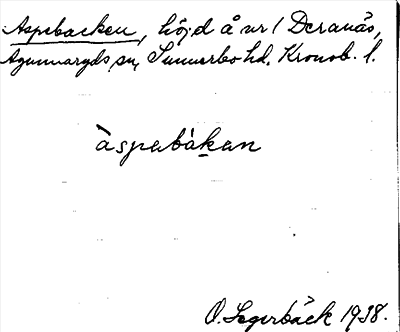 Aspebacken, höjd å nr 1 Deranäs,
Agunnaryds sn, Sunnerbo hd. Kronob. l.
àspabàkan
O. Segerbäck 1938.